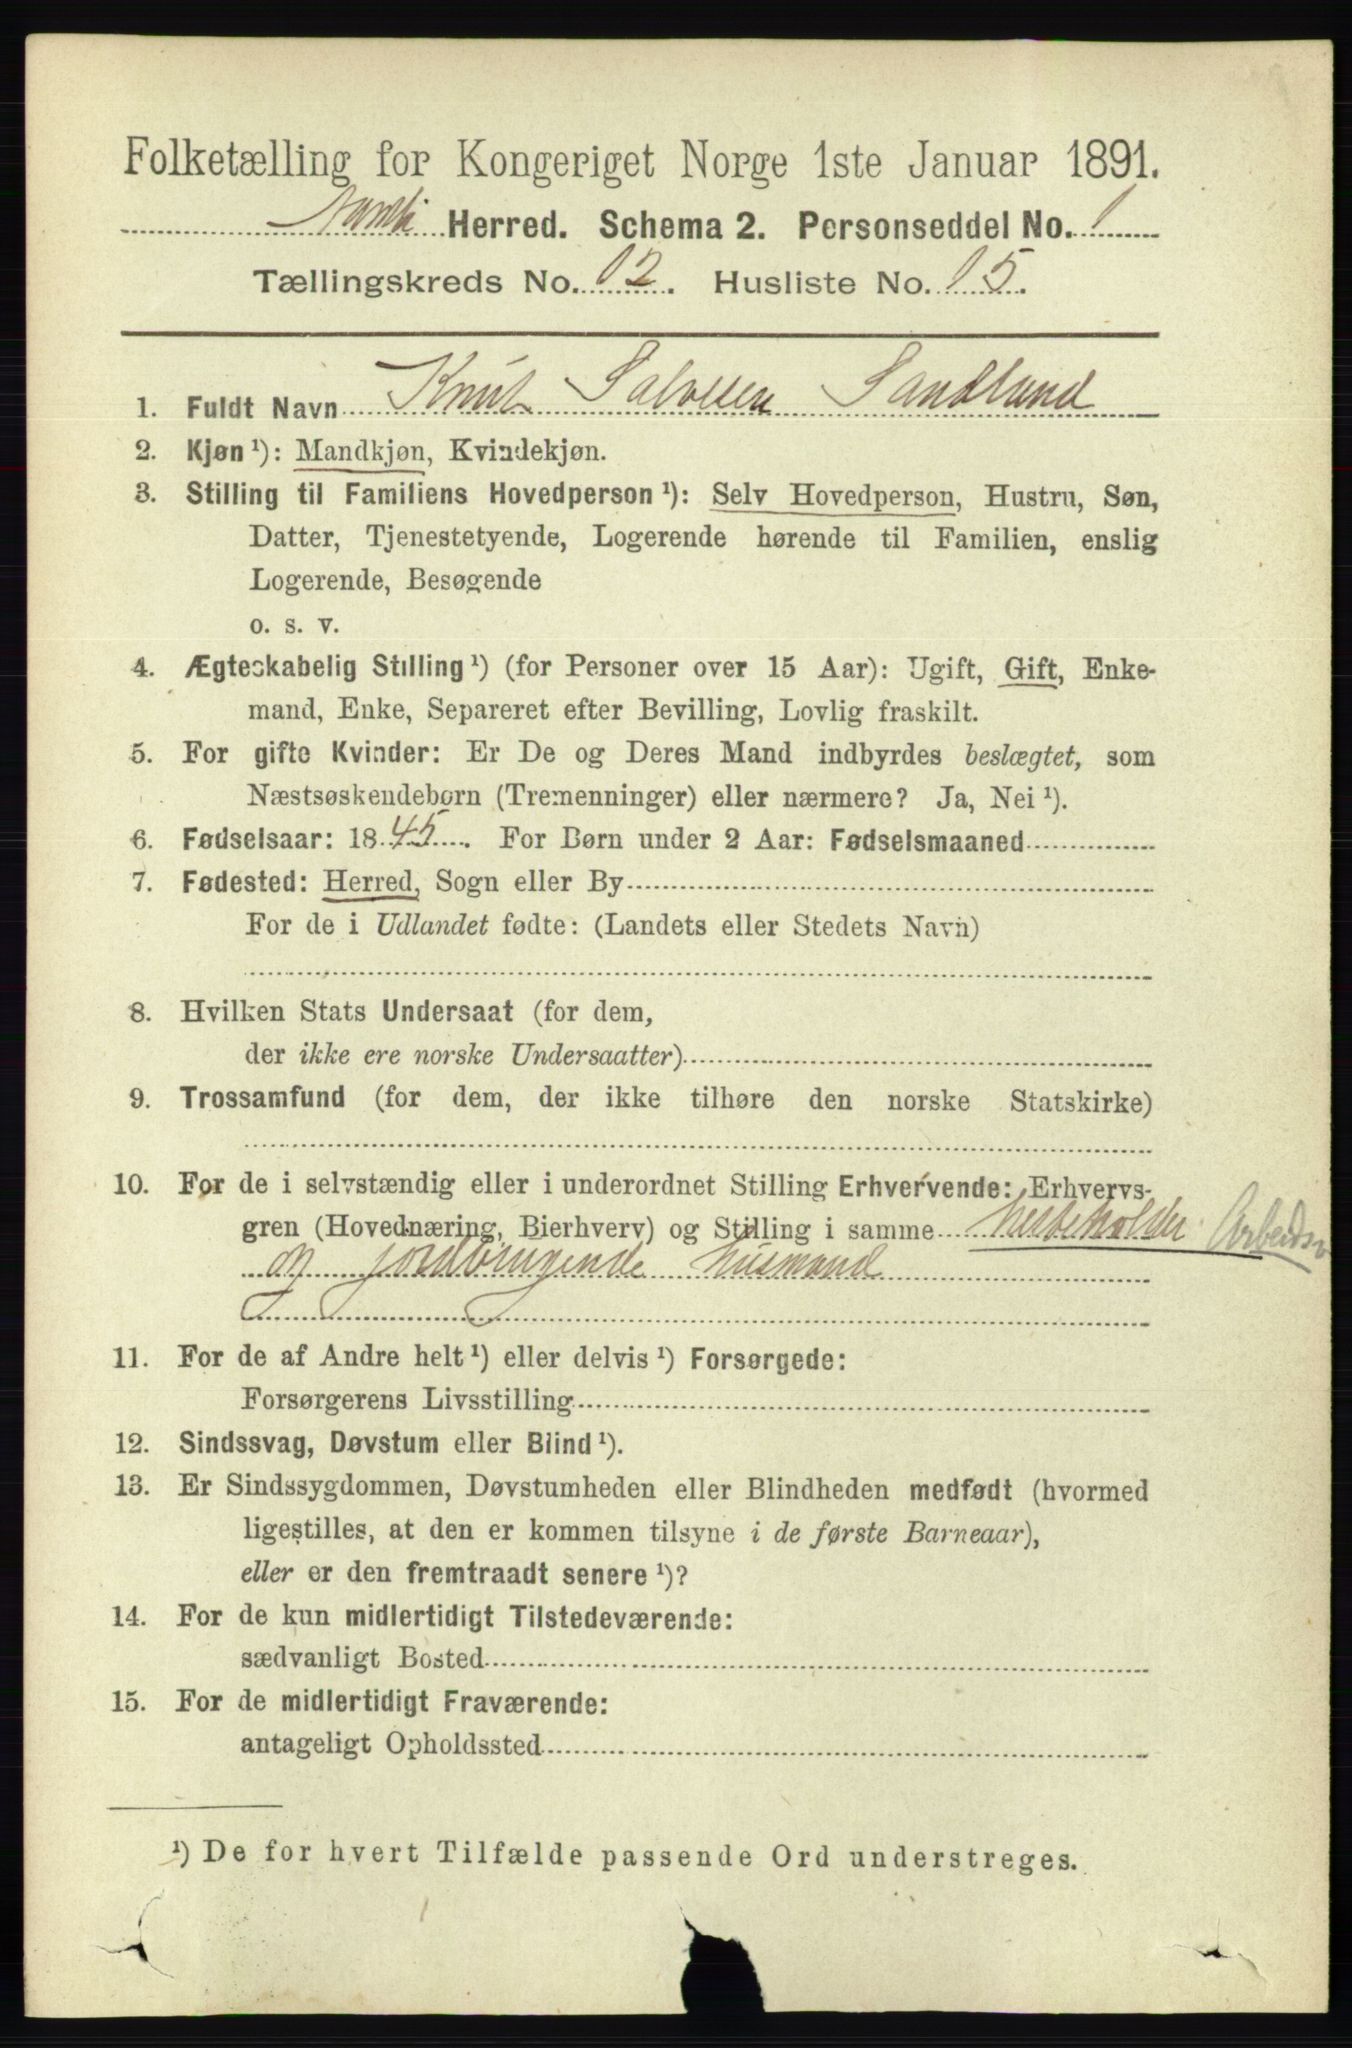 Folketælling for Kongeriget Norge 1ste Januar 1891.
Herred. Schema 2. Personseddel No. 1
Tællingskreds No. 12. Husliste No. 15.
1. Fuldt Navn Knut Salvesen Sandland
2. Kjøn ¹): Mandkjøn, Kvindekjøn.
3. Stilling til Familiens Hovedperson ¹): Selv Hovedperson, Hustru, Søn,
Datter, Tjenestetyende, Logerende hørende til Familien, enslig
Logerende, Besøgende
o. s. v.
4. Ægteskabelig Stilling ¹) (for Personer over 15 Aar): Ugift, Gift, Enke-
mand, Enke, Separeret efter Bevilling, Lovlig fraskilt.
5. For gifte Kvinder: Er De og Deres Mand indbyrdes beslægtet, som
Næstsøskendebørn (Tremenninger) eller nærmere? Ja, Nei ¹).
6. Fødselsaar: 1845. For Børn under 2 Aar: Fødselsmaaned
7. Fødested: Herred, Sogn eller By
For de i Udlandet fødte: (Landets eller Stedets Navn)
8. Hvilken Stats Undersaat (for dem,
der ikke ere norske Undersaatter)
9. Trossamfund (for dem, der ikke tilhøre den norske Statskirke)
10. For de i selvstændig eller i underordnet Stilling Erhvervende: Erhvervs-
gren (Hovednæring, Bierhverv) og Stilling i samme
og husmand
11. For de af Andre helt ¹) eller delvis ¹) Forsørgede:
Forsørgerens Livsstilling
12. Sindssvag, Døvstum eller Blind ¹).
13. Er Sindssygdommen, Døvstumheden eller Blindheden medfødt (hvormed
ligestilles, at den er kommen tilsyne i de første Barneaar),
eller er den fremtraadt senere ¹)?
14. For de kun midlertidigt Tilstedeværende:
sædvanligt Bosted
15. For de midlertidigt Fraværende:
antageligt Opholdssted
¹) De for hvert Tilfælde passende Ord understreges.